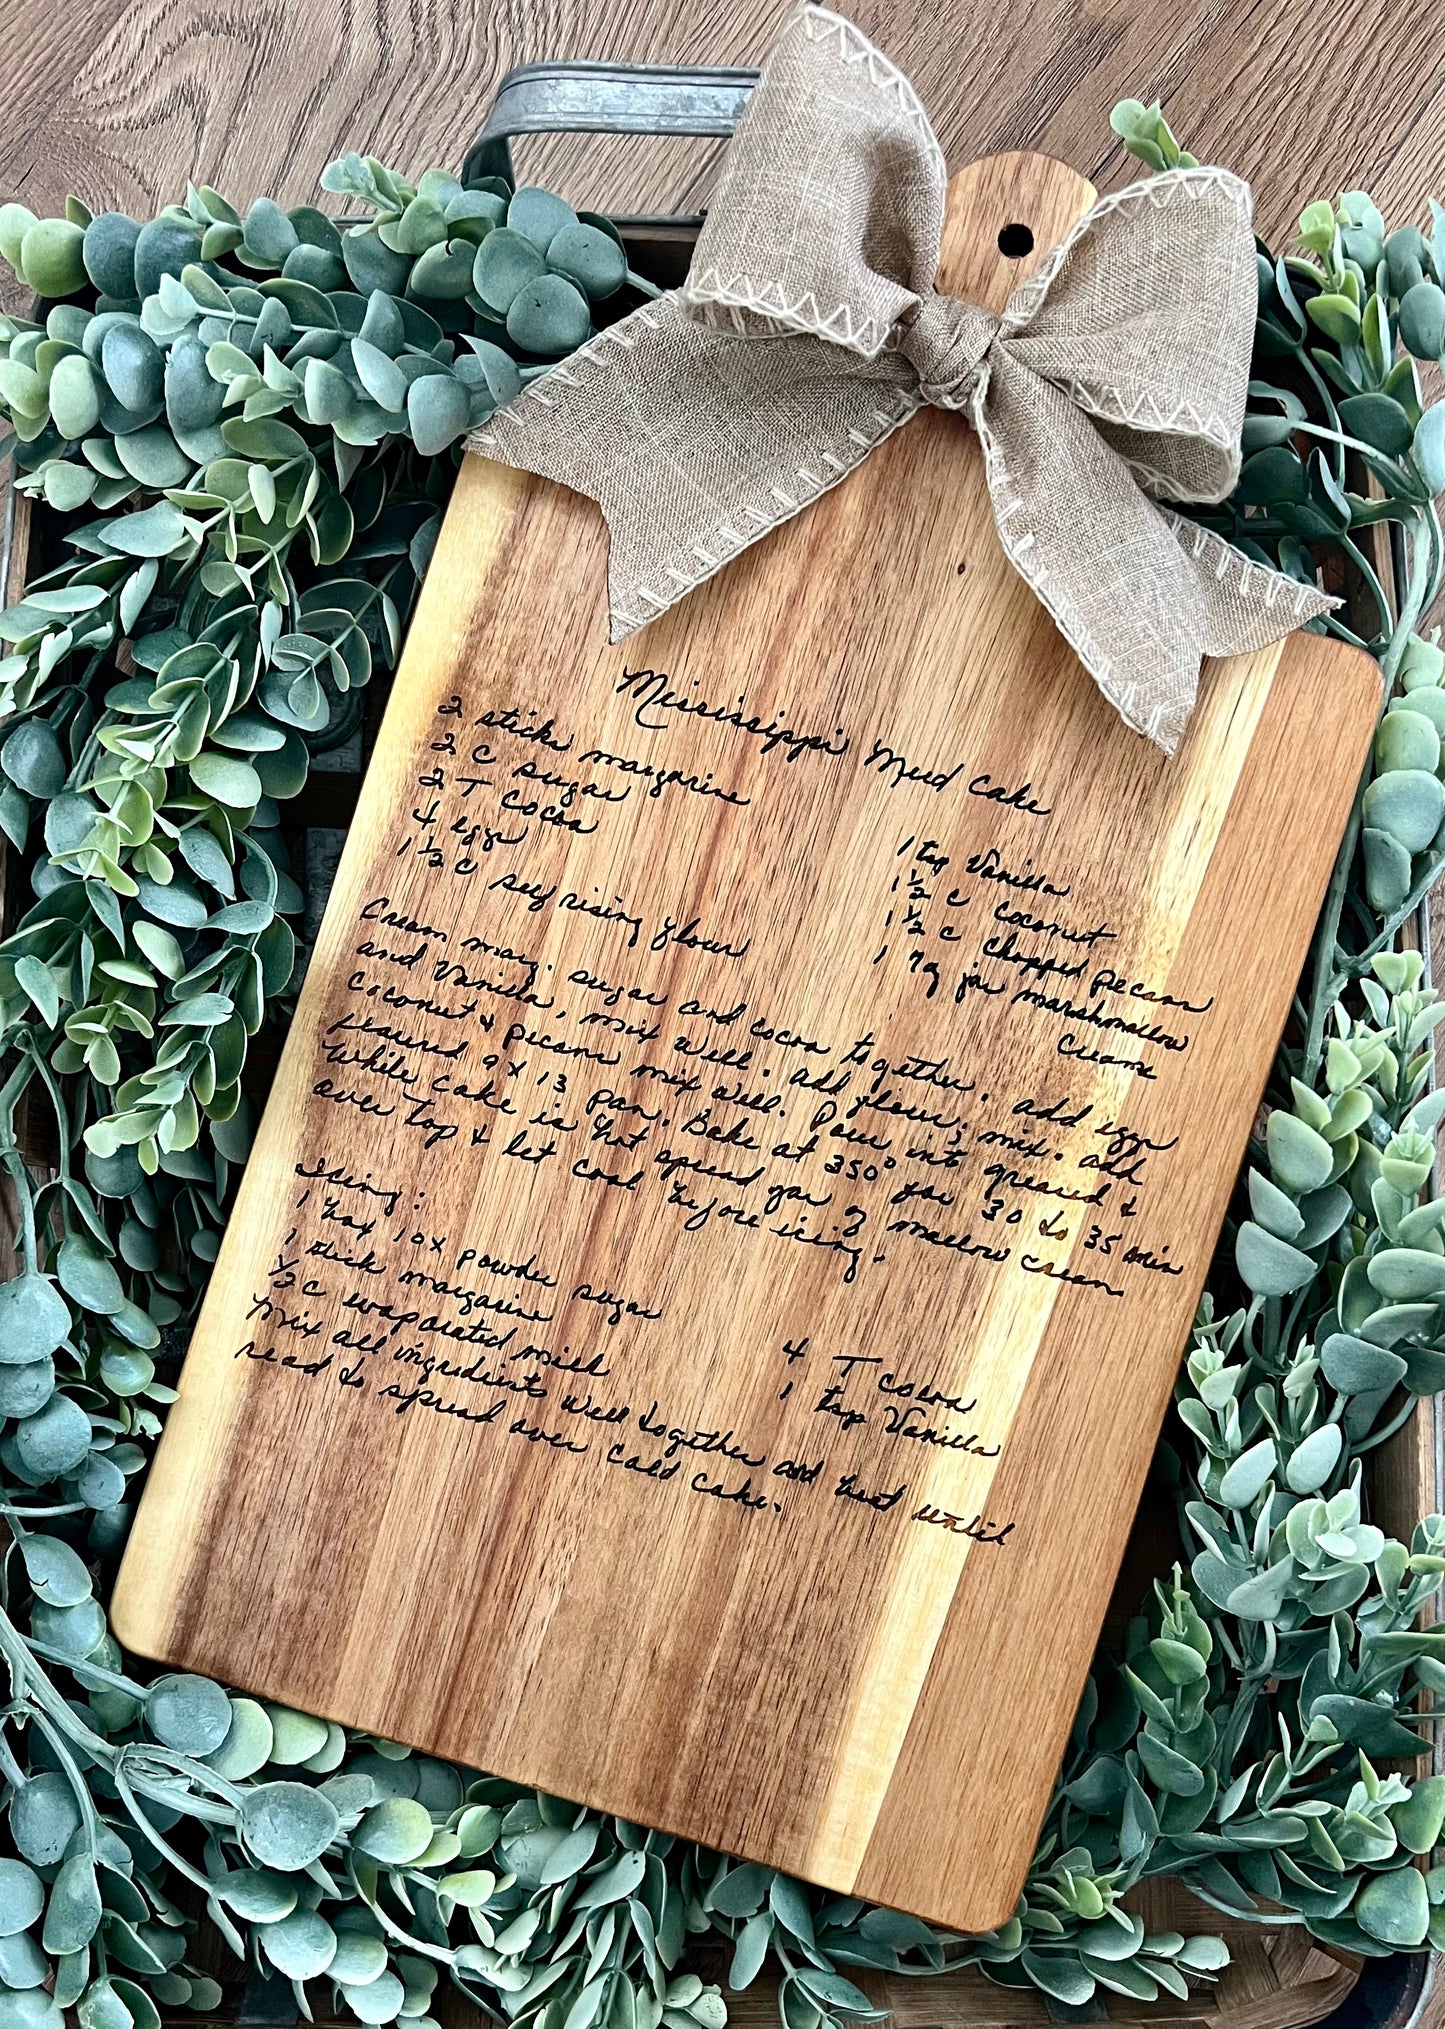 Mississippi Mud Cake
2 sticks margarine
2 c sugar
2 T Cocoa
4 eggs
1 1/2 c self rising flour
1 tsp Vanilla
1 1/2 c Coconut
1 1/2 c Chopped pecans
1 7oz jar marshmallow
Creame
Cream marg. sugar and cocoa together. add eggs
and Vanilla, mix well. add flour; mix. add
Coconut & pecans mix well. Pour into greased &
floured 9 x 13 pan. Bake at 350° for 30 to 35 min
While cake is hot spread jar of mallow cream
over top & let cool before icing.
Icing:
1 box 10x powder sugar
1 stick margarine
1/2 c evaporated milk
4 T cocoa
1 tsp Vanilla
Mix all ingredients well together and heat until
read to spread over cold cake.